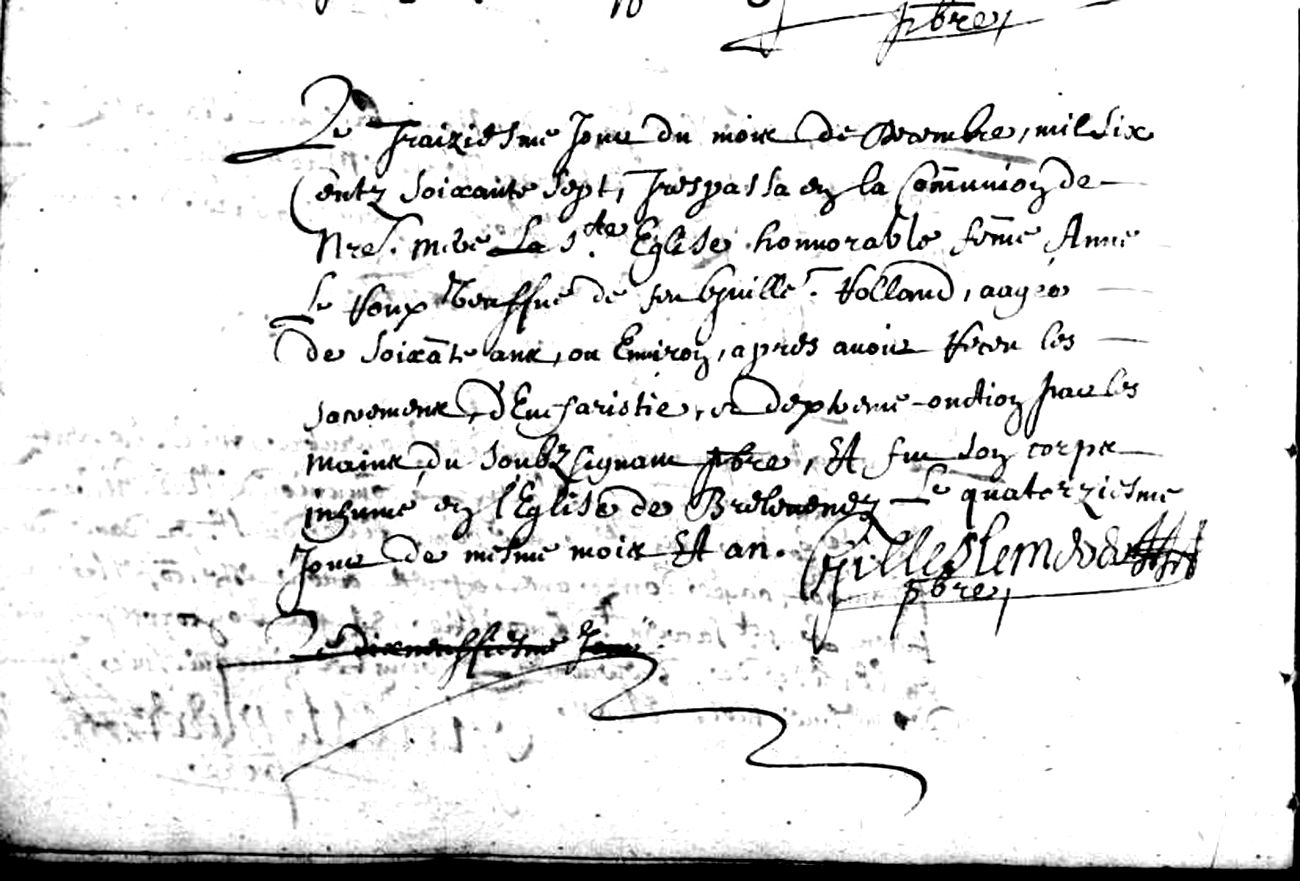 pbre
Le Traiziesme Jour du mois de Decembre, mil six
Centz soixante sept, Trespassa en la Com̃union de
Nre. mere La Ste Eglise honnorable fem̃e Anne
Le Roux Veuffve de feu Guille. Rolland, aagée
de soixãte ans, ou Environ, apres avoir Receu les
sacremens, d'Eucharistie, et d'extreme onction par les
mains du soubzsignant pbre, Et fut son corps
inhumé en l'Eglise de Brelevenez Le quatorziesme
Jour de mesme mois Et an. Gilles
pbre
Le dixneuffiesme Jour